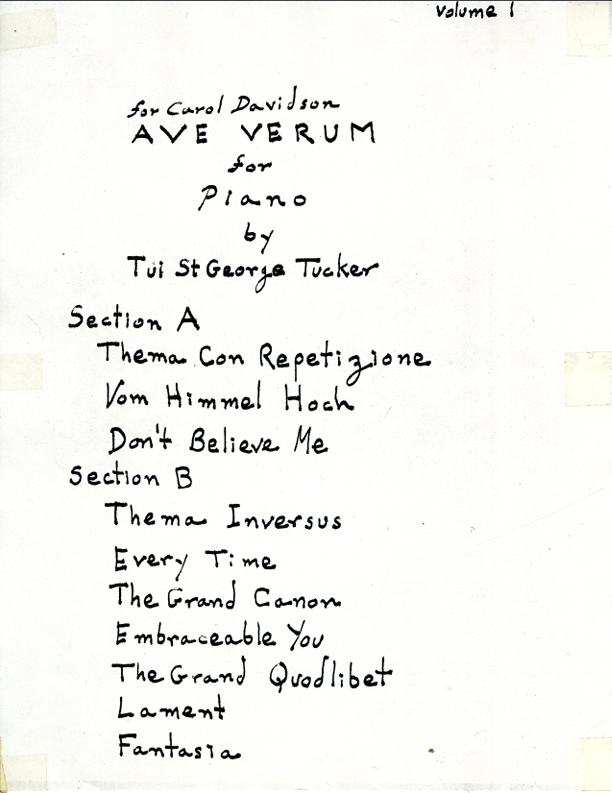 Volume 1
for Carol Davidson
AVE VERUM
for
Piano
by
Tui St George Tucker
Section A
Thema Con Repetizione
Vom Himmel Hoch
Don't Believe Me
Section B
Thema Inversus
Every Time
The Grand Canon
Embraceable You
The Grand Quodlibet
Lament
Fantasia